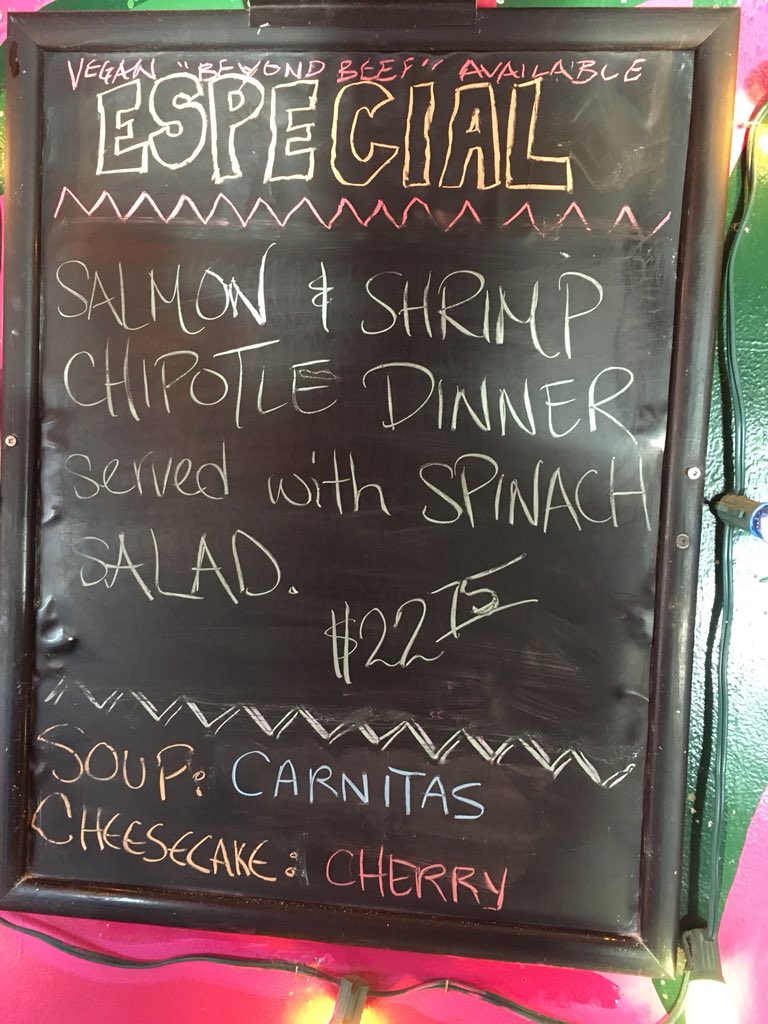 VEGAN "BEYOND BEEF" AVAILABLE
ESPECIAL
SALMON & SHRIMP
CHIPOTLE DINNER
served with SPINACH
SALAD.
$22 75
SOUP: CARNITAS
CHEESECAKE: CHERRY